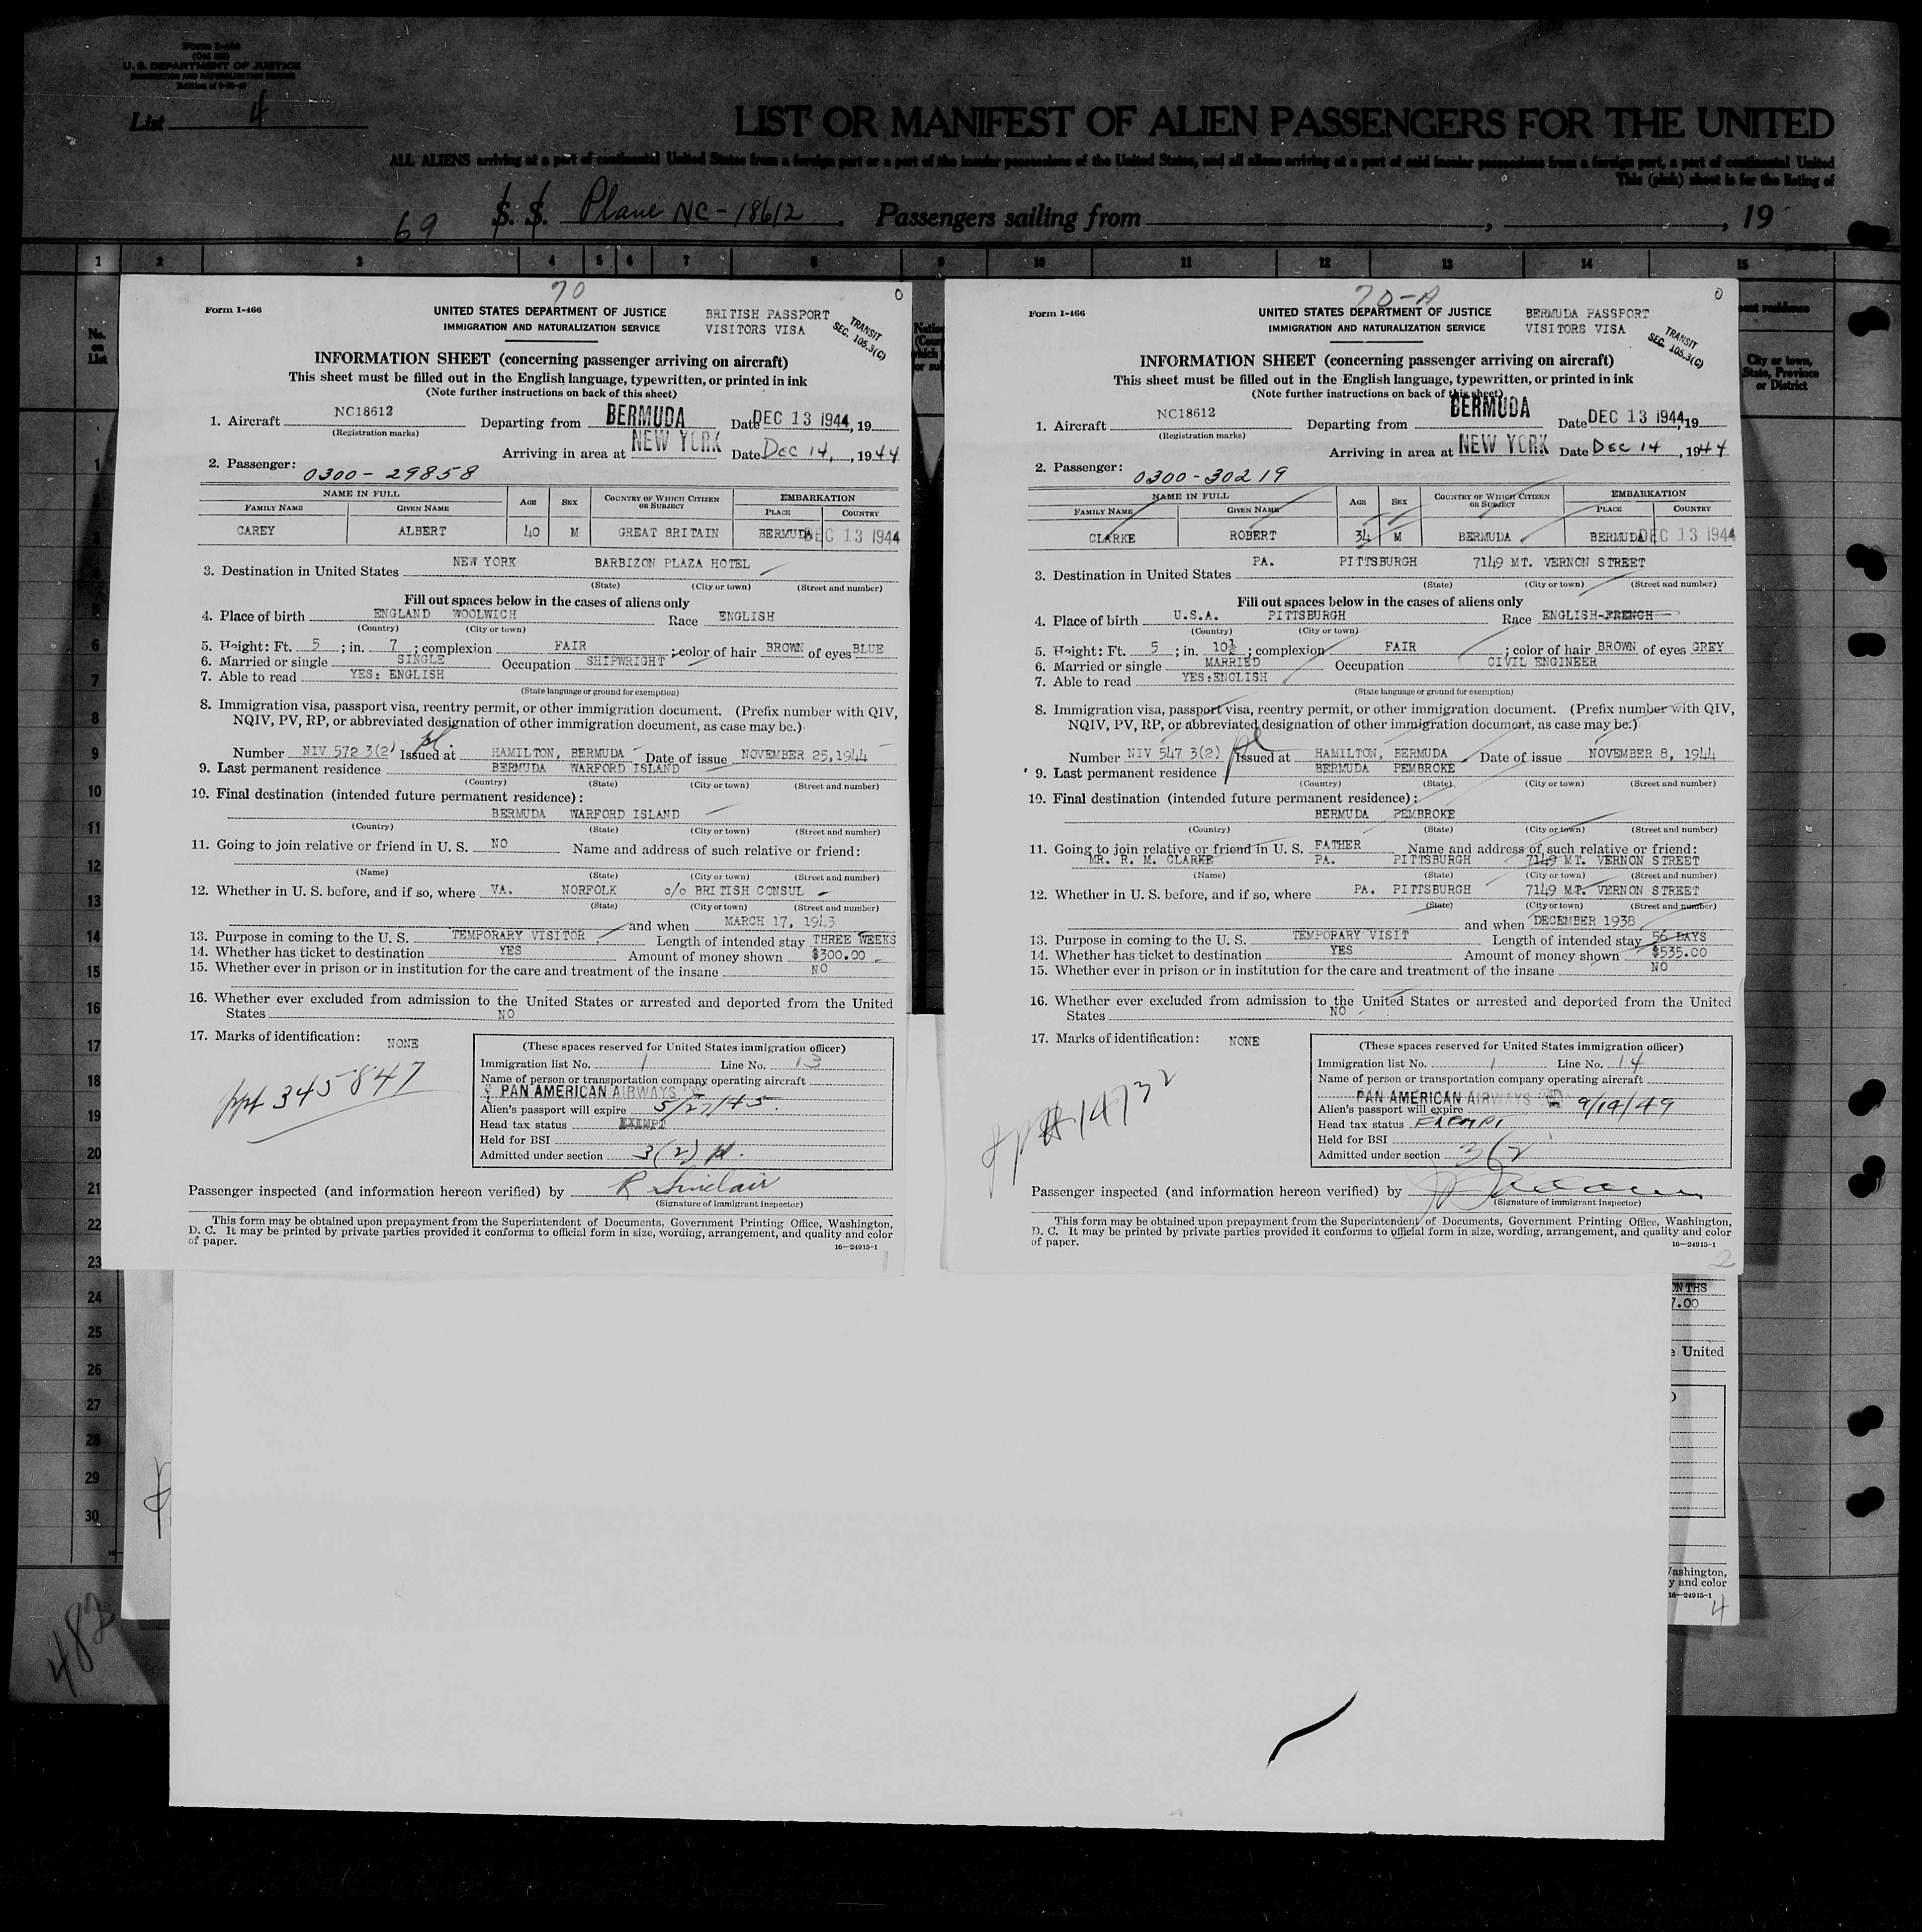 Form I-466
U. S. DEPARTMENT OF JUSTICE
IMMIGRATION AND NATURALIZATION SERVICE
List 4
LIST OR MANIFEST OF ALIEN PASSENGERS FOR THE UNITED
ALL ALIENS arriving at a port of continental United States from a foreign port or a port of the insular possessions of the United States, and all aliens arriving at a port of said insular possessions from a foreign port, a port of continental United
This (pink) sheet is for the listing of
69 S. S. Plane NC-18612 Passengers sailing from , , 19
1 2 3 4 5 6 7 8 9 10 11 12 13 14 15
No. on List
City or town, State, Province or District
70
Form I-466
UNITED STATES DEPARTMENT OF JUSTICE
IMMIGRATION AND NATURALIZATION SERVICE
BRITISH PASSPORT
VISITORS VISA
TRANSIT
SEC. 105.3(C)
INFORMATION SHEET (concerning passenger arriving on aircraft)
This sheet must be filled out in the English language, typewritten, or printed in ink
(Note further instructions on back of this sheet)
1. Aircraft NC18612 Departing from BERMUDA Date DEC 13 1944, 19
(Registration marks)
Arriving in area at NEW YORK Date DEC 14, , 1944
2. Passenger: 0300-29858
NAME IN FULL AGE SEX COUNTRY OF WHICH CITIZEN OR SUBJECT EMBARKATION
FAMILY NAME GIVEN NAME PLACE COUNTRY
CAREY ALBERT 40 M GREAT BRITAIN BERMUDA DEC 13 1944
3. Destination in United States NEW YORK BARBIZON PLAZA HOTEL
(State) (City or town) (Street and number)
Fill out spaces below in the cases of aliens only
4. Place of birth ENGLAND WOOLWICH Race ENGLISH
(Country) (City or town)
5. Height: Ft. 5 ; in. 7 ; complexion FAIR ; color of hair BROWN of eyes BLUE
6. Married or single SINGLE Occupation SHIPWRIGHT
7. Able to read YES: ENGLISH
(State language or ground for exemption)
8. Immigration visa, passport visa, reentry permit, or other immigration document. (Prefix number with QIV,
NQIV, PV, RP, or abbreviated designation of other immigration document, as case may be.)
Number NIV 572 3(2) Issued at HAMILTON, BERMUDA Date of issue NOVEMBER 25,1944
9. Last permanent residence BERMUDA WARFORD ISLAND
(Country) (State) (City or town) (Street and number)
10. Final destination (intended future permanent residence):
BERMUDA WARFORD ISLAND
(Country) (State) (City or town) (Street and number)
11. Going to join relative or friend in U. S. NO Name and address of such relative or friend:
(Name) (State) (City or town) (Street and number)
12. Whether in U. S. before, and if so, where VA. NORFOLK c/o BRITISH CONSUL
(State) (City or town) (Street and number)
and when MARCH 17, 1943
13. Purpose in coming to the U. S. TEMPORARY VISITOR Length of intended stay THREE WEEKS
14. Whether has ticket to destination YES Amount of money shown $300.00
15. Whether ever in prison or in institution for the care and treatment of the insane NO
16. Whether ever excluded from admission to the United States or arrested and deported from the United
States NO
17. Marks of identification: NONE
ppt 345847
(These spaces reserved for United States immigration officer)
Immigration list No. 1 Line No. 13
Name of person or transportation company operating aircraft
PAN AMERICAN AIRWAYS
Alien's passport will expire 5/27/45.
Head tax status EXEMPT
Held for BSI
Admitted under section 3(2)
Passenger inspected (and information hereon verified) by R Sinclair
(Signature of immigrant inspector)
This form may be obtained upon prepayment from the Superintendent of Documents, Government Printing Office, Washington,
D. C. It may be printed by private parties provided it conforms to official form in size, wording, arrangement, and quality and color
of paper.
16—24915-1
70-A
Form I-466
UNITED STATES DEPARTMENT OF JUSTICE
IMMIGRATION AND NATURALIZATION SERVICE
BERMUDA PASSPORT
VISITORS VISA
TRANSIT
SEC. 105.3(C)
INFORMATION SHEET (concerning passenger arriving on aircraft)
This sheet must be filled out in the English language, typewritten, or printed in ink
(Note further instructions on back of this sheet)
1. Aircraft NC18612 Departing from BERMUDA Date DEC 13 1944, 19
(Registration marks)
Arriving in area at NEW YORK Date DEC 14 , 1944
2. Passenger: 0300-30219
NAME IN FULL AGE SEX COUNTRY OF WHICH CITIZEN OR SUBJECT EMBARKATION
FAMILY NAME GIVEN NAME PLACE COUNTRY
CLARKE ROBERT 34 M BERMUDA BERMUDA DEC 13 1944
3. Destination in United States PA. PITTSBURGH 7149 MT. VERNON STREET
(State) (City or town) (Street and number)
Fill out spaces below in the cases of aliens only
4. Place of birth U.S.A. PITTSBURGH Race ENGLISH-FRENCH
(Country) (City or town)
5. Height: Ft. 5 ; in. 10½ ; complexion FAIR ; color of hair BROWN of eyes GREY
6. Married or single MARRIED Occupation CIVIL ENGINEER
7. Able to read YES:ENGLISH
(State language or ground for exemption)
8. Immigration visa, passport visa, reentry permit, or other immigration document. (Prefix number with QIV,
NQIV, PV, RP, or abbreviated designation of other immigration document, as case may be.)
Number NIV 547 3(2) Issued at HAMILTON, BERMUDA Date of issue NOVEMBER 8, 1944
9. Last permanent residence BERMUDA PEMBROKE
(Country) (State) (City or town) (Street and number)
10. Final destination (intended future permanent residence):
BERMUDA PEMBROKE
(Country) (State) (City or town) (Street and number)
11. Going to join relative or friend in U. S. FATHER Name and address of such relative or friend:
MR. R. M. CLARKE PA. PITTSBURGH 7149 MT. VERNON STREET
(Name) (State) (City or town) (Street and number)
12. Whether in U. S. before, and if so, where PA. PITTSBURGH 7149 MT. VERNON STREET
(State) (City or town) (Street and number)
and when DECEMBER 1938
13. Purpose in coming to the U. S. TEMPORARY VISIT Length of intended stay 56 DAYS
14. Whether has ticket to destination YES Amount of money shown $535.00
15. Whether ever in prison or in institution for the care and treatment of the insane NO
16. Whether ever excluded from admission to the United States or arrested and deported from the United
States NO
17. Marks of identification: NONE
(These spaces reserved for United States immigration officer)
Immigration list No. 1 Line No. 14
Name of person or transportation company operating aircraft
PAN AMERICAN AIRWAYS
Alien's passport will expire 9/14/49
Head tax status EXEMPT
Held for BSI
Admitted under section 3(2
Passenger inspected (and information hereon verified) by
(Signature of immigrant inspector)
This form may be obtained upon prepayment from the Superintendent of Documents, Government Printing Office, Washington,
D. C. It may be printed by private parties provided it conforms to official form in size, wording, arrangement, and quality and color
of paper.
16—24915-1
2
1
6
7
8
9
10
11
12
13
14
15
16
17
18
19
20
21
22
23
24
25
26
27
28
29
30
7.00
United
and color
16—24915-1
4
482